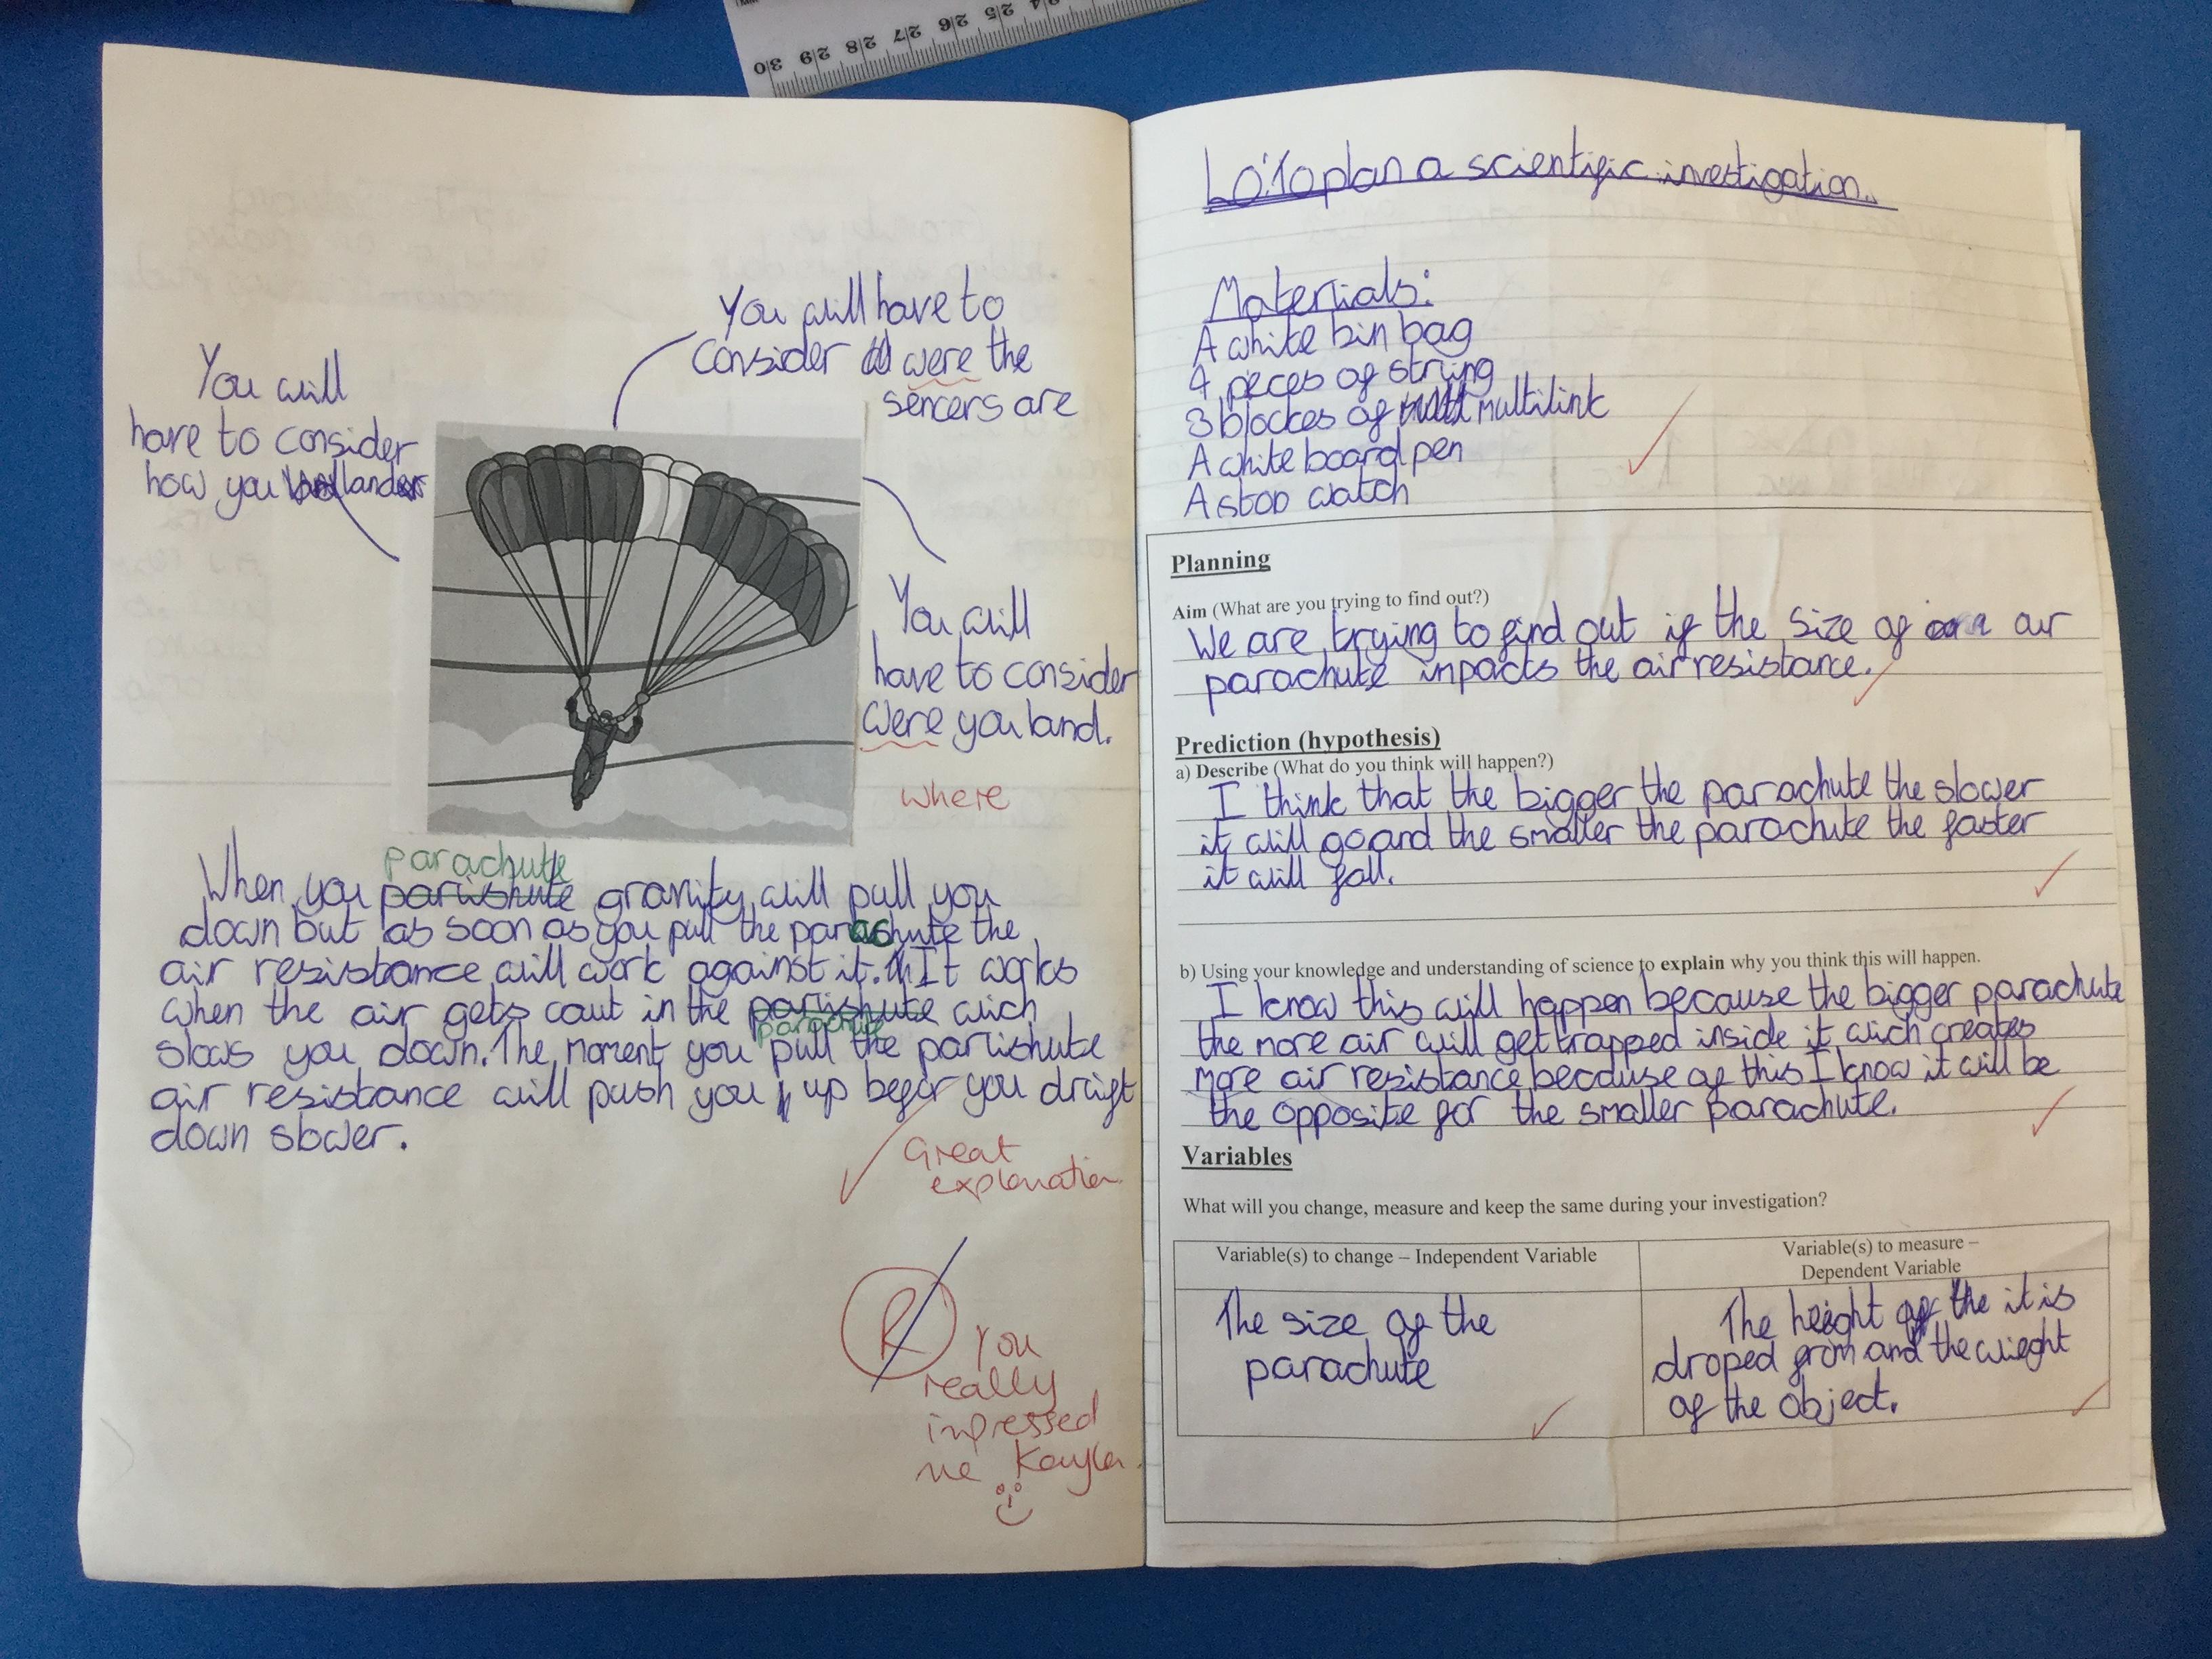 30 29 28 27 26 25 24
You will have to
consider were the
sencers are
You will
have to consider
how you land
You will
have to consider
were you land.
where
parachute
When you parishute gravity will pull you
down but as soon as you pull the parachute the
air resistance will work against it. It works
when the air gets caut in the parishute wich
parachute
slows you down. The moment you pull the parishute
air resistance will push you up befor you draift
down slower.
Great
explanation
R
You
really
impressed
me Kayla
LO: To plan a scientific investigation.
Materials:
A white bin bag
4 peces of string
3 blockes of multilink
A white board pen
A stop watch
Planning
Aim (What are you trying to find out?)
We are trying to find out if the size of our
parachute inpacts the air resistance.
Prediction (hypothesis)
a) Describe (What do you think will happen?)
I think that the bigger the parachute the slower
it will go and the smaller the parachute the faster
it will fall.
b) Using your knowledge and understanding of science to explain why you think this will happen.
I know this will happen because the bigger parachute
the more air will get trapped inside it wich creates
more air resistance because of this I know it will be
the opposite for the smaller parachute.
Variables
What will you change, measure and keep the same during your investigation?
Variable(s) to change – Independent Variable
The size of the
parachute
Variable(s) to measure –
Dependent Variable
The height of the it is
droped from and the wieght
of the object.